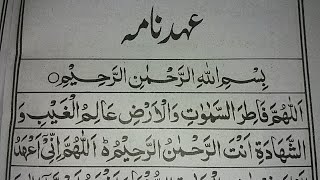 عہد نامہ
بِسْمِ اللهِ الرَّحْمٰنِ الرَّحِيْمِ○
اَللّٰهُمَّ فَاطِرَ السَّمٰوٰتِ وَالْاَرْضِ عَالِمَ الْغَيْبِ وَ
الشَّهَادَةِ اَنْتَ الرَّحْمٰنُ الرَّحِيْمُ ط اَللّٰهُمَّ اِنِّىْ اَعْهَدُ